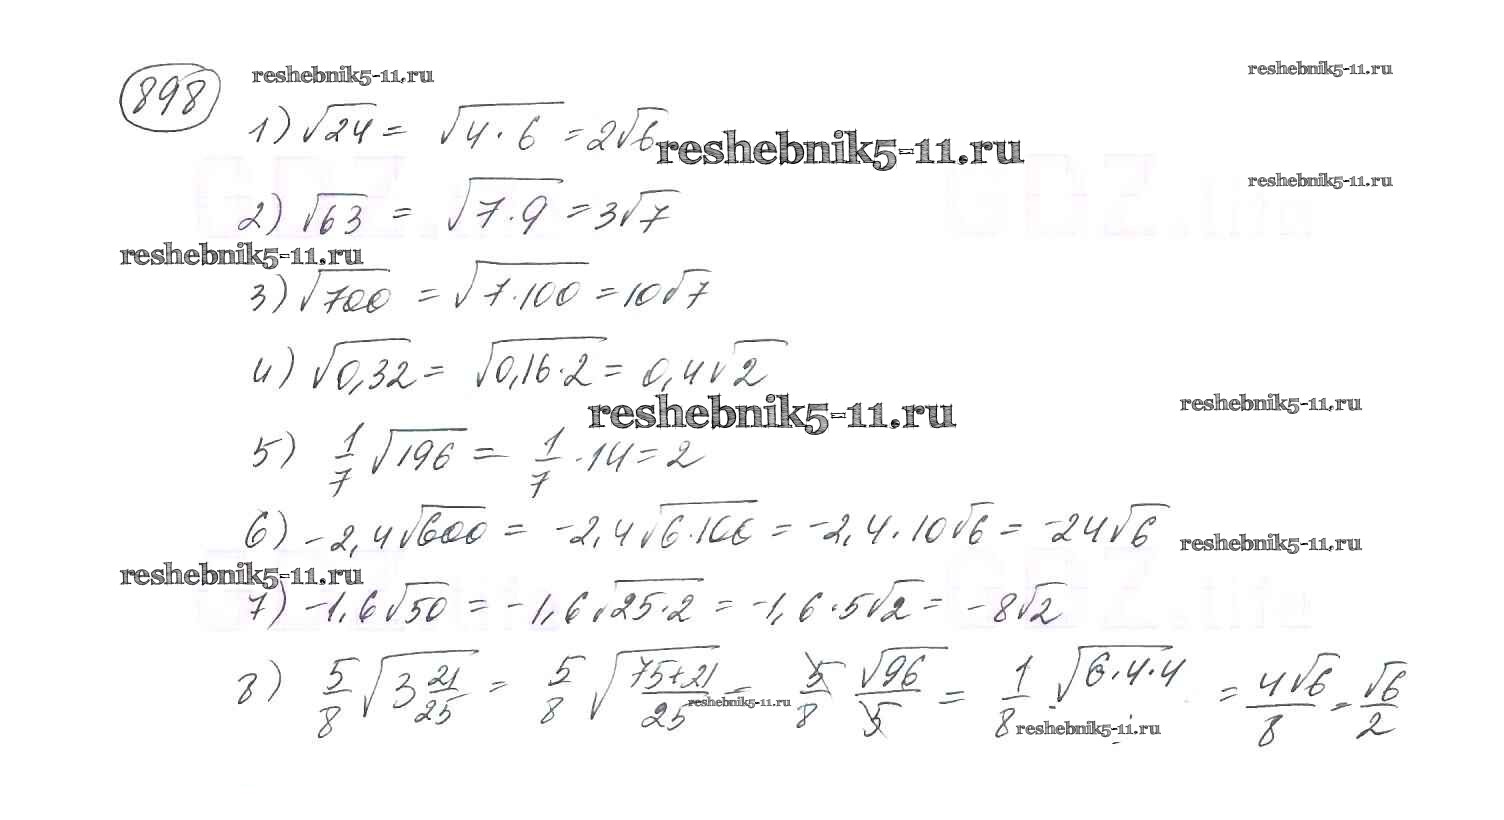 898 reshebnik5-11.ru reshebnik5-11.ru
1) √24 = √4·6 = 2√6 reshebnik5-11.ru
reshebnik5-11.ru
2) √63 = √7·9 = 3√7
reshebnik5-11.ru
3) √700 = √7·100 = 10√7
4) √0,32 = √0,16·2 = 0,4√2
reshebnik5-11.ru reshebnik5-11.ru
5) 1/7 √196 = 1/7 · 14 = 2
6) -2,4√600 = -2,4√6·100 = -2,4·10√6 = -24√6 reshebnik5-11.ru
reshebnik5-11.ru
7) -1,6√50 = -1,6√25·2 = -1,6·5√2 = -8√2
8) 5/8 √3 21/25 = 5/8 √75+21/25 = 5/8 √96/5 = 1/8 · √6·4·4 = 4√6/8 = √6/2
reshebnik5-11.ru reshebnik5-11.ru